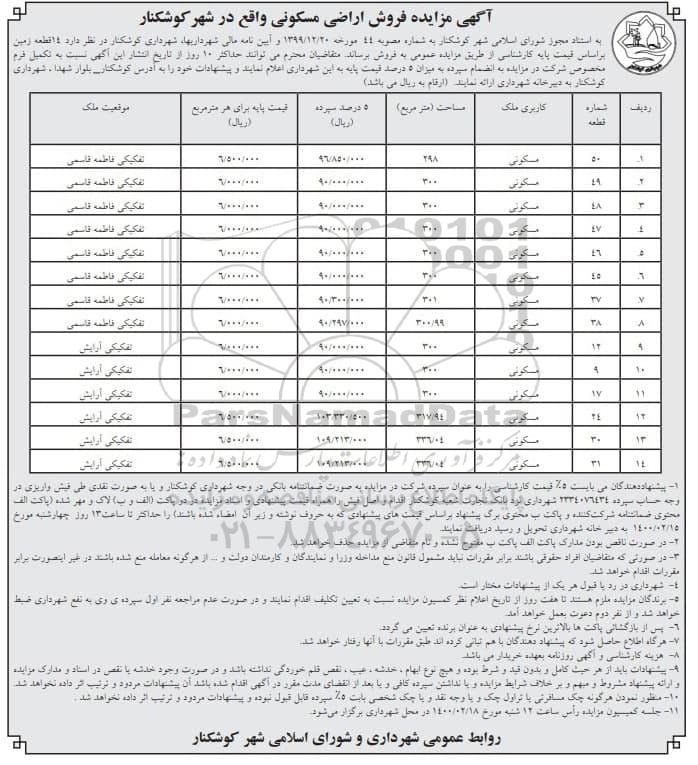 آگهی مزایده فروش اراضی مسکونی واقع در شهر کوشکنار
به استناد مجوز شورای اسلامی شهر کوشکنار به شماره مصوبه ۴۴ مورخه ۱۳۹۹/۱۲/۲۰ و آیین نامه مالی شهرداریها، شهرداری کوشکنار در نظر دارد ۱۴قطعه زمین
براساس قیمت پایه کارشناسی از طریق مزایده عمومی به فروش برساند. متقاضیان محترم می توانند حداکثر ۱۰ روز از تاریخ انتشار این آگهی نسبت به تکمیل فرم
مخصوص شرکت در مزایده به انضمام سپرده به میزان ۵ درصد قیمت پایه به این شهرداری اعلام نمایند و پیشنهادات خود را به آدرس کوشکنار_ بلوار شهدا ، شهرداری
کوشکنار به دبیرخانه شهرداری ارائه نمایند. (ارقام به ریال می باشد)
ردیف شماره قطعه کاربری ملک مساحت (متر مربع) ۵ درصد سپرده (ریال) قیمت پایه برای هر مترمربع (ریال) موقعیت ملک
۱. ۵۰ مسکونی ۲۹۸ ۹۶/۸۵۰/۰۰۰ ۶/۵۰۰/۰۰۰ تفکیکی فاطمه قاسمی
۲. ۴۹ مسکونی ۳۰۰ ۹۰/۰۰۰/۰۰۰ ۶/۰۰۰/۰۰۰ تفکیکی فاطمه قاسمی
۳. ۴۸ مسکونی ۳۰۰ ۹۰/۰۰۰/۰۰۰ ۶/۰۰۰/۰۰۰ تفکیکی فاطمه قاسمی
۴. ۴۷ مسکونی ۳۰۰ ۹۰/۰۰۰/۰۰۰ ۶/۰۰۰/۰۰۰ تفکیکی فاطمه قاسمی
۵. ۴۶ مسکونی ۳۰۰ ۹۰/۰۰۰/۰۰۰ ۶/۰۰۰/۰۰۰ تفکیکی فاطمه قاسمی
۶. ۴۵ مسکونی ۳۰۰ ۹۰/۰۰۰/۰۰۰ ۶/۰۰۰/۰۰۰ تفکیکی فاطمه قاسمی
۷. ۳۷ مسکونی ۳۰۱ ۹۰/۳۰۰/۰۰۰ ۶/۰۰۰/۰۰۰ تفکیکی فاطمه قاسمی
۸. ۳۸ مسکونی ۳۰۰/۹۹ ۹۰/۲۹۷/۰۰۰ ۶/۰۰۰/۰۰۰ تفکیکی فاطمه قاسمی
۹ ۱۲ مسکونی ۳۰۰ ۹۰/۰۰۰/۰۰۰ ۶/۰۰۰/۰۰۰ تفکیکی آرایش
۱۰ ۹ مسکونی ۳۰۰ ۹۰/۰۰۰/۰۰۰ ۶/۰۰۰/۰۰۰ تفکیکی آرایش
۱۱ ۱۷ مسکونی ۳۰۰ ۹۰/۰۰۰/۰۰۰ ۶/۰۰۰/۰۰۰ تفکیکی آرایش
۱۲ ۲۴ مسکونی ۳۱۷/۹۴ ۱۰۳.۳۳۰/۵۰۰ ۶/۵۰۰/۰۰۰ تفکیکی آرایش
۱۳ ۳۰ مسکونی ۳۳۶/۰۴ ۱۰۹/۲۱۳/۰۰۰ ۶/۵۰۰/۰۰۰ تفکیکی آرایش
۱۴ ۳۱ مسکونی ۳۳۶/۰۴ ۱۰۹/۲۱۳/۰۰۰ ۶/۵۰۰/۰۰۰ تفکیکی آرایش
ParsNamadData
۰۲۱-۸۸۳۴۹۶۷۰-۵
۱- پیشنهاددهندگان می بایست ۵٪ قیمت کارشناسی را به عنوان سپرده شرکت در مزایده به صورت ضمانتنامه بانکی در وجه شهرداری کوشکنار و یا به صورت نقدی طی فیش واریزی در
وجه حساب سپرده ۲۳۳۴۰۷۶۴۳۴ شهرداری نزد بانک تجارت شعبه کوشکنار اقدام و اصل فیش را همراه قیمت پیشنهادی و اسناد مزایده در دو پاکت (الف و ب) لاک و مهر شده (پاکت الف
محتوی ضمانتنامه شرکت‌کننده و پاکت ب محتوی برگ پیشنهاد براساس قیمت های پیشنهادی که به حروف نوشته و زیر آن امضاء شده باشند) را حداکثر تا ساعت۱۳ روز چهارشنبه مورخ
۱۴۰۰/۰۲/۱۵ به دبیر خانه شهرداری تحویل و رسید دریافت نمایند.
۲- در صورت ناقص بودن مدارک پاکت الف پاکت ب مفتوح نشده و نام متقاضی از مزایده حذف خواهد شد.
۳- در صورتی که متقاضیان افراد حقوقی باشند برابر مقررات نباید مشمول قانون منع مداخله وزرا و نمایندگان و کارمندان دولت و ... از هرگونه معامله منع شده باشند در غیر اینصورت برابر
مقررات اقدام خواهد شد.
۴- شهرداری در رد یا قبول هر یک از پیشنهادات مختار است.
۵- برندگان مزایده ملزم هستند تا هفت روز از تاریخ اعلام نظر کمسیون مزایده نسبت به تعیین تکلیف اقدام نمایند و در صورت عدم مراجعه نفر اول سپرده ی وی به نفع شهرداری ضبط
خواهد شد و از نفر دوم دعوت بعمل خواهد آمد.
۶- پس از بازگشائی پاکت ها بالاترین نرخ پیشنهادی به عنوان برنده تعیین می گردد.
۷- هرگاه اطلاع حاصل شود که پیشنهاد دهندگان با هم تبانی کرده اند طبق مقررات با آنها رفتار خواهد شد.
۸- هزینه کارشناسی و آگهی روزنامه بعهده خریدار می باشد.
۹- پیشنهادات باید از هر حیث کامل و بدون قید و شرط بوده و هیچ نوع ابهام ، خدشه ، عیب ، نقص قلم خوردگی نداشته باشد و در صورت وجود خدشه یا نقص در اسناد و مدارک مزایده
و ارائه پیشنهاد مشروط و مبهم و بر خلاف شرایط مزایده و یا نداشتن سپرده کافی و یا بعد از انقضای مدت مقرر در آگهی اقدام شده باشد آن پیشنهادات مردود و ترتیب اثر داده نخواهد شد.
۱۰- منظور نمودن هرگونه چک مسافرتی یا تراول چک و یا وجه نقد و یا چک شخصی بابت ۵٪ سپرده قابل قبول نبوده و پیشنهادات مردود و ترتیب اثر داده نخواهد شد .
۱۱- جلسه کمیسیون مزایده رأس ساعت ۱۲ شنبه مورخ ۱۴۰۰/۰۲/۱۸ در محل شهرداری برگزار می‌شود.
روابط عمومی شهرداری و شورای اسلامی شهر کوشکنار